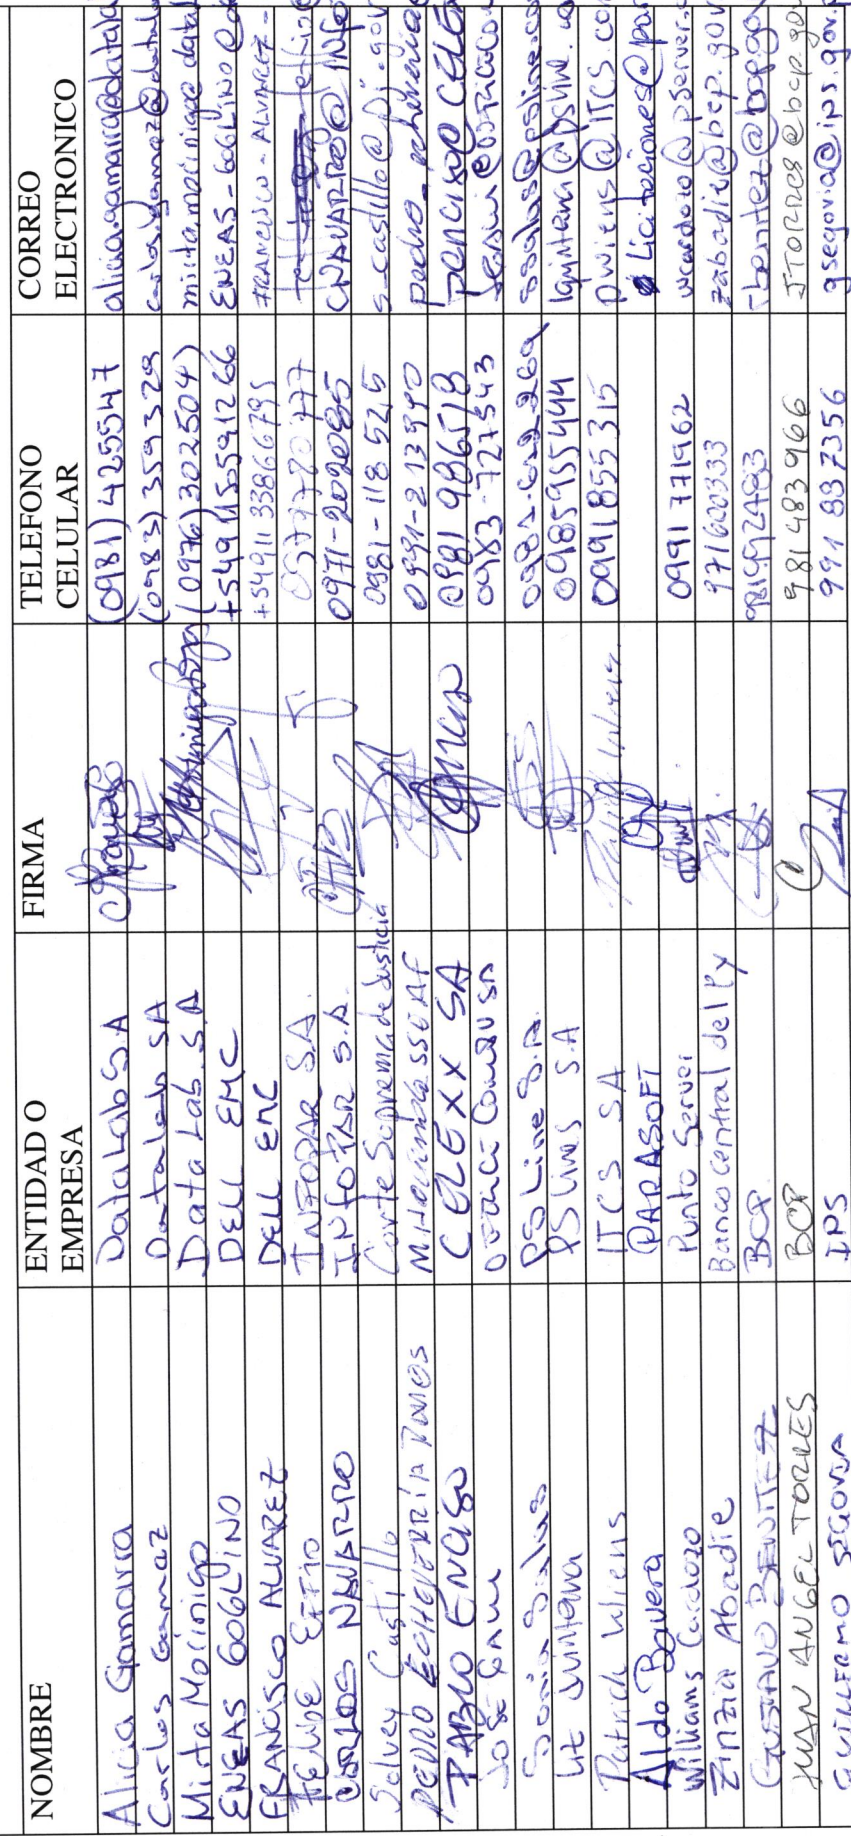 NOMBRE ENTIDAD O EMPRESA FIRMA TELEFONO CELULAR CORREO ELECTRONICO
Alicia Gamarra DataLab S.A (0981) 425547 alicia.gamarra@datala
Carlos Gamaz DataLab SA (0983) 359329 carlos.gamaz@datala
Mirta Morinigo Data Lab. S.A (0976) 302504) mirta.morinigo@datal
ENEAS GOGLINO DELL EMC +5491155591266 ENEAS-GOGLINO@
FRANCISCO ALVAREZ DELL EMC +5491133866795 FRANCISCO-ALVAREZ-
FELIPE INFOPAR S.A.
CARLOS NAVARRO INFOPAR S.A. 0971-202085 CNAVARRO@INFO
Solvey Castillo Corte Suprema de Justicia 0981-118525 s-castillo@pj.gov
PEDRO ECHEVERRÍA RAMOS M. Hacienda SSEAF 0991-213940 pedro_echeverria@
PABLO ENCISO CELEXX SA 0981 986518 penciso@CELE
JOSE 0983-727543
Sonia Salas PS Line S.A. 0982-622269 ssalas@psline.co
Liz Quintana PS Line S.A 0985955444 lquintana@psline.co
Patrick Wiens ITCS SA 0991855315 pwiens@ITCS.co
Aldo Bavera PARASOFT Licitaciones@par
Williams Cardozo Punto Server 0991771962 wcardozo@pserver.
Zinzia Abadie Banco Central del Py 971600333 zabadie@bcp.gov
GUSTAVO BENITEZ BCP 981992483 benitez@bcp.gov
JUAN ANGEL TORRES BCP 981483966 JTORRES@bcp.gov
GUILLERMO SEGOVIA IPS 991 887356 gsegovia@ips.gov.p